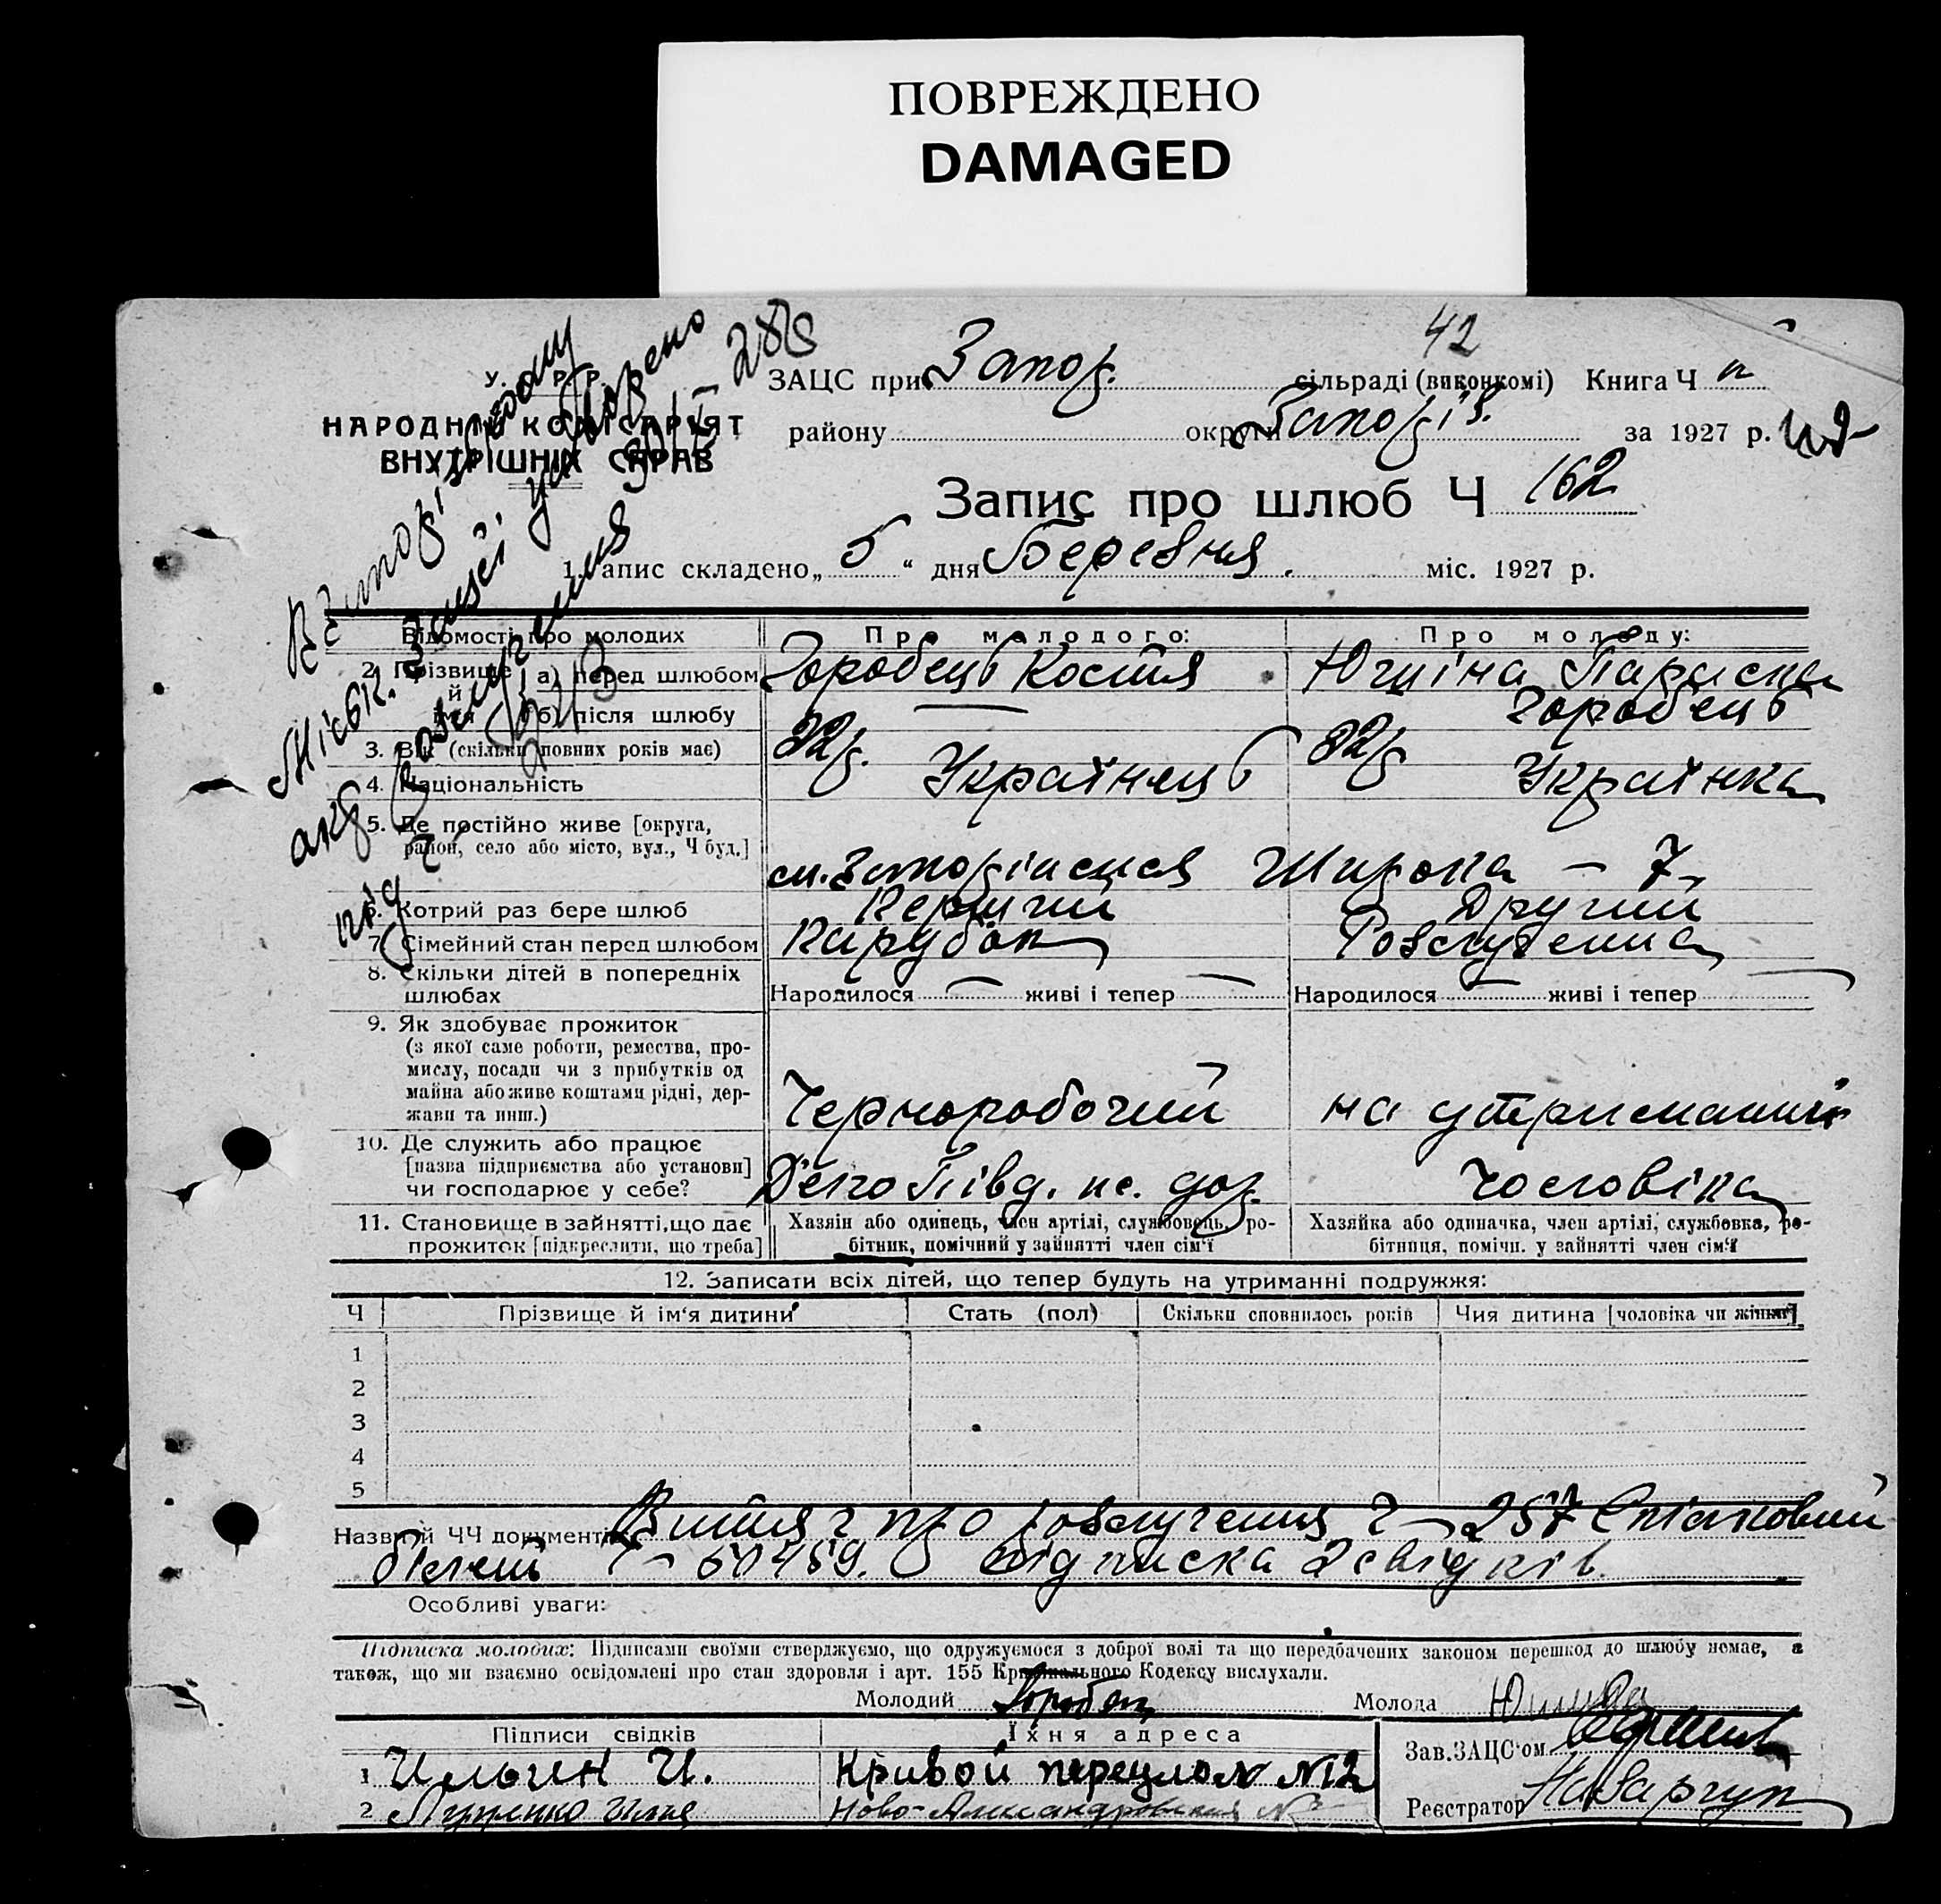 ПОВРЕЖДЕНО
DAMAGED
42
У. Р. Р.
НАРОДНІЙ КОМІСАРІЯТ
ВНУТРІШНІХ СПРАВ
ЗАЦС при Запор. сільраді (виконкомі) Книга Ч
району округи Запоріз. за 1927 р.
Запис про шлюб Ч 162
1. Запис складено „ 5 “ дня Березня. міс. 1927 р.
Міськ. Зацсі утворено
акт розлучення 30/IV-28
від
Відомості про молодих Про молодого: Про молоду:
2. Прізвище й ім'я а) перед шлюбом Горобець Костя Параска
б) після шлюбу — Горобець
3. Вік (скільки повних років має) 32р. 32р
4. Національність Українець Українка
5. Де постійно живе [округа,
район, село або місто, вул., Ч буд.] Широка – 7
6. Котрий раз бере шлюб Перший Другий
7. Сімейний стан перед шлюбом Парубок Розлучена
8. Скільки дітей в попередніх
шлюбах Народилося — живі і тепер — Народилося — живі і тепер —
9. Як здобуває прожиток
(з якої саме роботи, ремества, про-
мислу, посади чи з прибутків од
майна або живе коштами рідні, дер-
жави та инш.) Чорноробочий на утриманні
10. Де служить або працює
[назва підприємства або установи]
чи господарює у себе? Депо Півд. дор. чоловіка
11. Становище в зайнятті, що дає
прожиток [підкреслити, що треба]
Хазяін або одинець, член артілі, службовець, ро-
бітник, помічний у зайнятті член сім'ї
Хазяйка або одиначка, член артілі, службовка, ро-
бітниця, помічн. у зайнятті член сім'ї
12. Записати всіх дітей, що тепер будуть на утриманні подружжя:
Ч Прізвище й ім'я дитини Стать (пол) Скільки сповнилось років Чия дитина [чоловіка чи жінки]
1
2
3
4
5
Назви й ЧЧ документів Витяг про розлучення Ч – 257 Спілковий
білет Ч – 50459. Підписка 2 свідків.
Особливі уваги:
Підписка молодих: Підписами своїми стверджуємо, що одружуємося з доброї волі та що передбачених законом перешкод до шлюбу немає, а
також, що ми взаємно освідомлені про стан здоровля і арт. 155 Кримінального Кодексу вислухали.
Молодий Горобец Молода
Підписи свідків Їхня адреса
Зав. ЗАЦС'ом
1 Ильин И. Кривой переулок №12
2 Илья Ново-Александровская №
Реєстратор